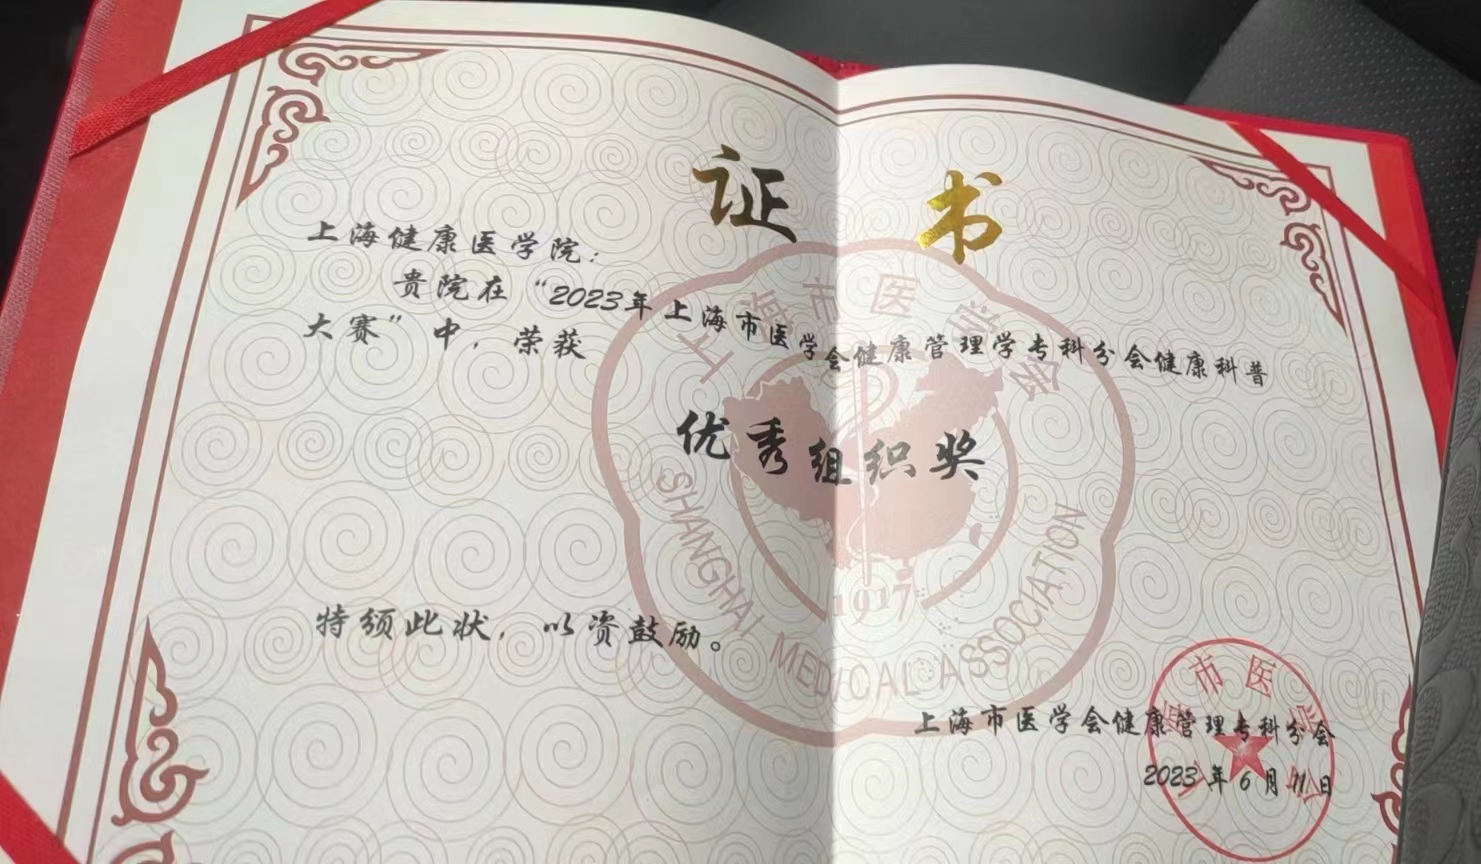 证 书
上海健康医学院：
贵院在“2023年上海市医学会健康管理学专科分会健康科普
大赛”中，荣获
优秀组织奖
特颁此状，以资鼓励。
上海市医学会健康管理专科分会
2023年6月11日
上海市医学会
1917
SHANGHAI MEDICAL ASSOCIATION
市医学